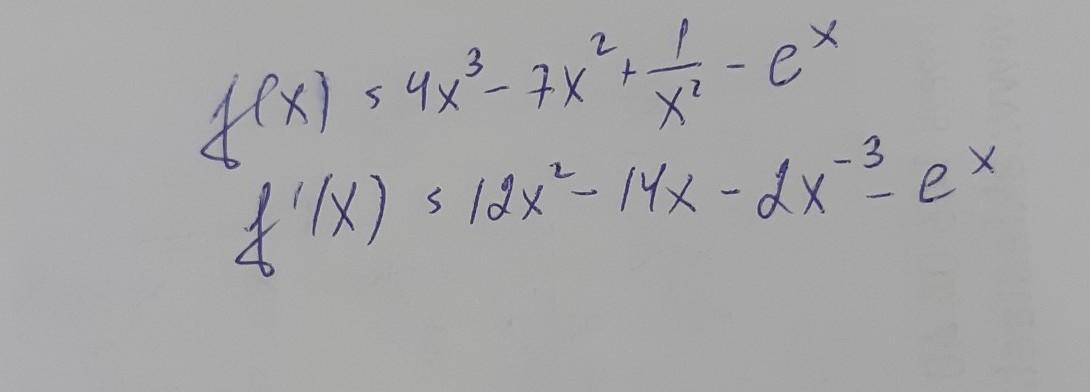 f(x) = 4x³ - 7x² + 1/x² - eˣ
f'(x) = 12x² - 14x - 2x⁻³ - eˣ